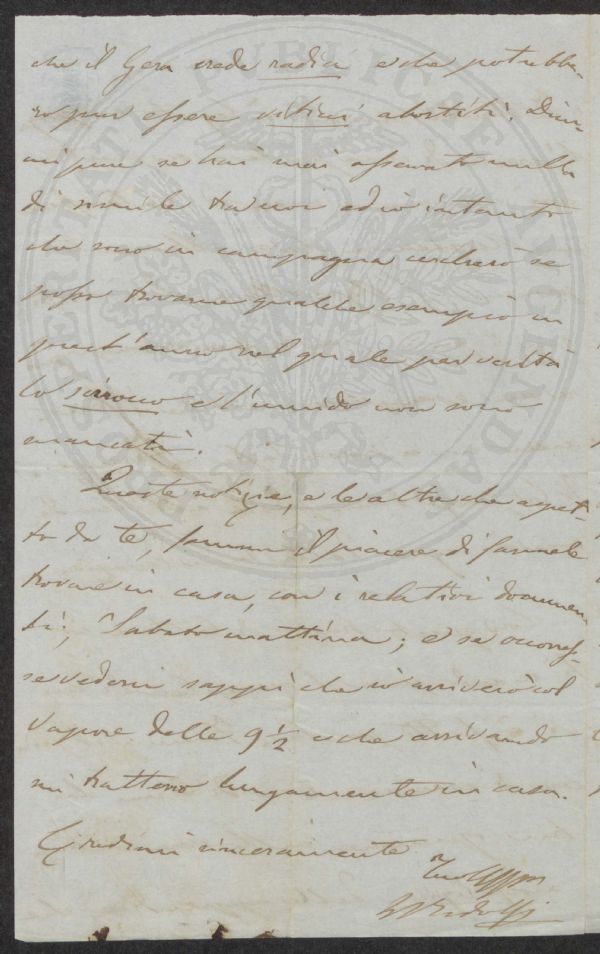 che il Gera crede radici e che potrebbe-
ro pur essere viticci abortiti. Dim-
mi pure se hai mai osservato nulla
di simile tra noi ed io intanto
che sono in campagna cercherò se
posso trovarne qualche esempio in
quest'anno nel quale per verità
lo scirocco e l'umido non sono
mancati.
Queste notizie, e le altre che aspet-
to da te, fammi il piacere di farmele
trovare in casa, con i relativi documen
ti, Sabato mattina; e se occores-
se vedermi sappi che io arriverò col
vapore delle 9 1/2 e che arrivando
mi tratterrò lungamente in casa.
Credimi sinceramente
Tuo
Ridolfi
PUBLICAE
PROSPERITATI
AUGENDAE